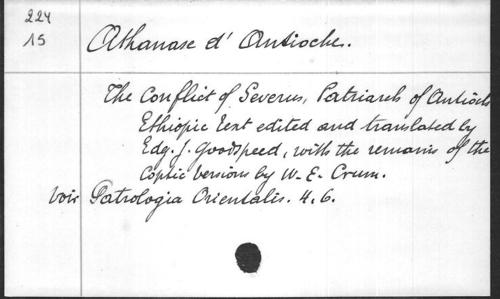 224
15
Athanase d' Antioche.
The Conflict of Severus, Patriarch of Antioch
Ethiopic text edited and translated by
Edg. J. Goodspeed, with the remains of the
Coptic versions by W. E. Crum.
voir Patrologia Orientalis. 4, 6.